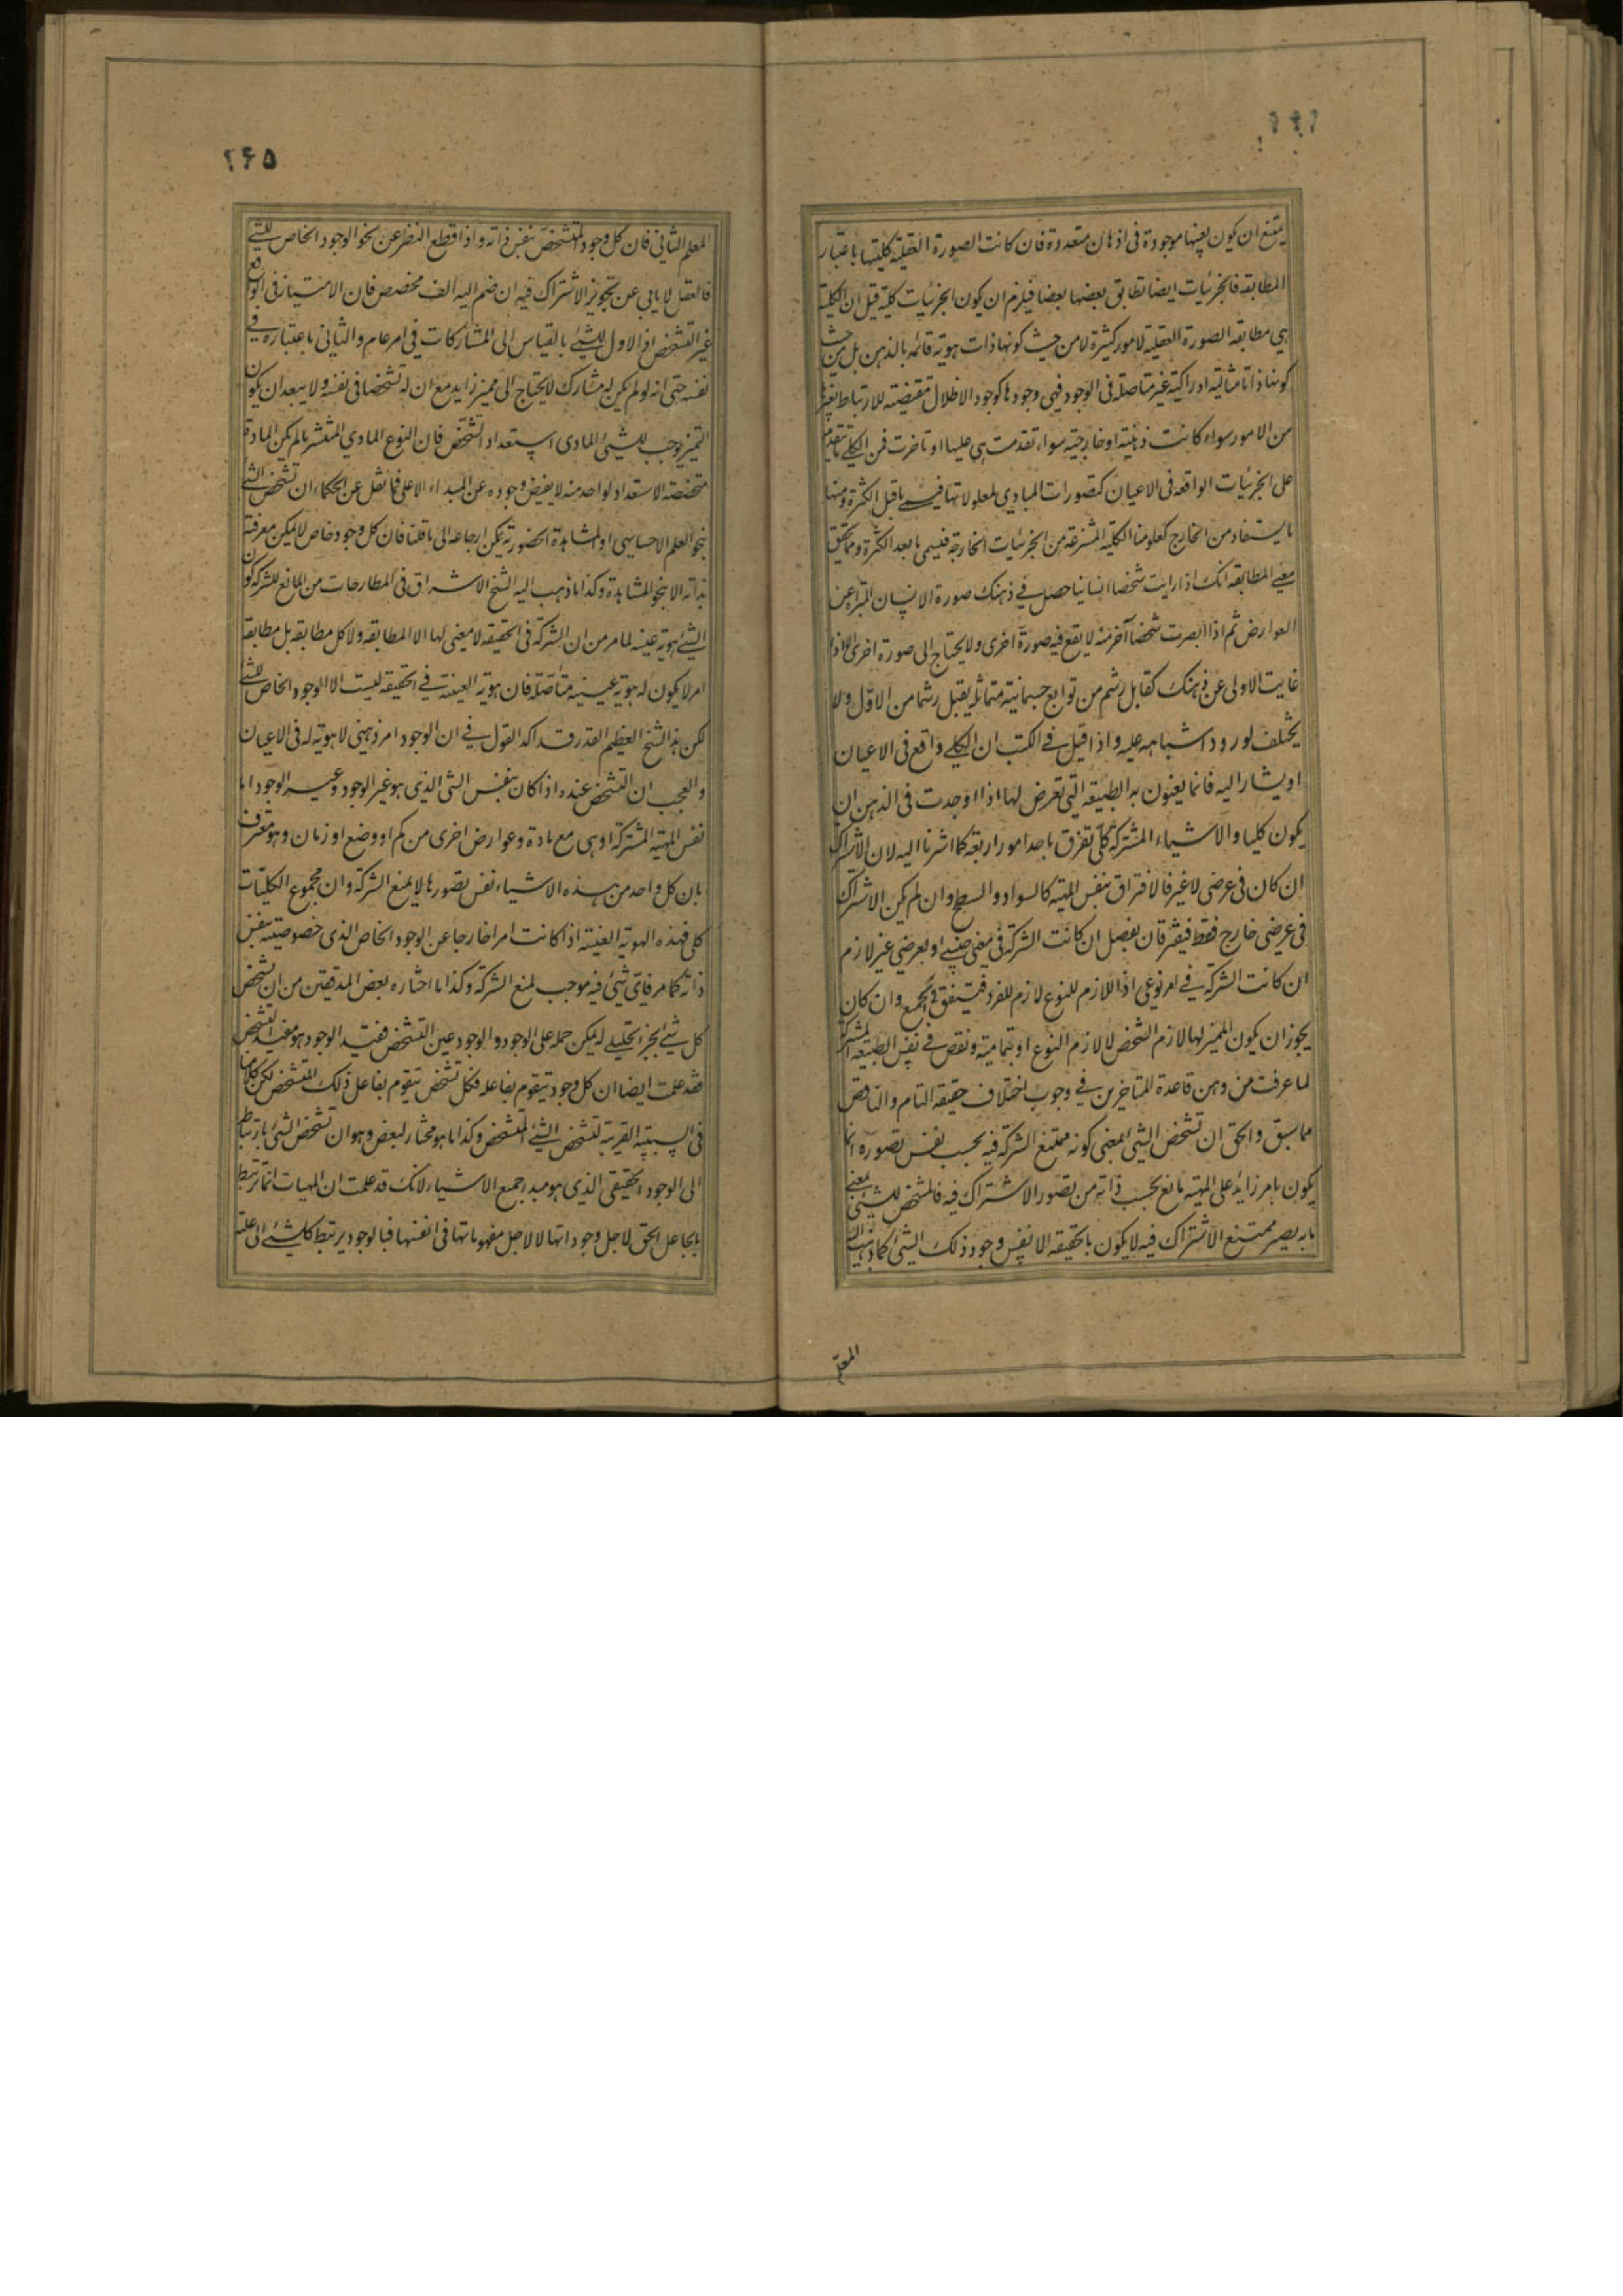 يمتنع ان يكون بعينها موجودة فى اذهان متعددة فان كانت الصورة العقلية كليتها باعتبار
المطابقة فالجزئيات ايضا تطابق بعضها بعضا فيلزم ان يكون الجزئيات كلية قيل ان الكلية
هي مطابقة الصورة العقلية لامور كثيرة لا من حيث كونها ذات هوية قائمة بالذهن بل من حيث
كونها ذاتا مثالية ادراكية غير متاصلة فى الوجود فهي وجودها كوجود الاظلال مقتضية للارتباط بغيرها
من الامور سواء كانت ذهنية او خارجية سواء تقدمت هي عليها او تاخرت فمن الكلي ما يتقدم
على الجزئيات الواقعة فى الاعيان كتصورات المبادي لمعلولاتها فيسمى ما قبل الكثرة ومنها
ما يستفاد من الخارج كعلومنا الكلية المنتزعة من الجزئيات الخارجة فيسمى ما بعد الكثرة ومما يحقق
معنى المطابقة انك اذا رايت شخصا انسانيا حصل في ذهنك صورة الانسان المتبراة عن
العوارض ثم اذا ابصرت شخصا آخر منه لا يقع فيه صورة اخرى ولا يحتاج الى صورة اخرى الا اذا
غابت الاولى عن ذهنك كقابل رشم من توابع جسمانية متماثلة يقبل رشما من الاول ولا
يختلف لورود اشباهه عليه واذا قيل في الكتب ان الكلي واقع فى الاعيان
او يشار اليه فانما يعنون به الطبيعة التى تعرض لها اذا وجدت فى الذهن ان
يكون كليا والاشياء المشتركة كلى تفرق باحد امور اربعة كما اشرنا اليه لان الاشتراك
ان كان فى عرضى لا غير فالافتراق بنفس المهية كالسواد والسطح وان لم يكن الاشتراك
فى عرضى خارج فقط فيفترقان بفصل ان كانت الشركة فى معنى جنسي او بعرضي غير لازم
ان كانت الشركة في امر نوعي اذ اللازم للنوع لازم للفرد فيتفق في الجميع وان كان
يجوز ان يكون المميز لها لازم الشخص لا لازم النوع او بتمامية ونقص في نفس الطبيعة المشتركة
لما عرفت من وهن قاعدة المتاخرين في وجوب اختلاف حقيقة التام والناقص
مما سبق والحق ان تشخص الشيء بمعنى كونه ممتنع الشركة فيه بحسب نفس تصوره انما
يكون بامر زائد على المهية مانع بحسب ذاته من تصور الاشتراك فيه فالمشخص للشيء بمعنى
ما به يصير ممتنع الاشتراك فيه لا يكون بالحقيقة الا نفس وجود ذلك الشيء كما ذهب اليه
المعلم
٢۶۵
المعلم الثاني فان كل وجود متشخص بنفس ذاته واذا قطع النظر عن نحو الوجود الخاص للشيء
فالعقل لا يابي عن تجويز الاشتراك فيه ان ضم اليه الف مخصص فان الامتياز في الواقع
غير التشخص اذ الاول للشيء بالقياس الى المشاركات في امر عام والثاني باعتباره في
نفسه حتى انه لو لم يكن له مشارك لا يحتاج الى مميز زايد مع ان له تشخصا فى نفسه ولا يبعد ان يكون
التميز يوجب للشيء المادى استعداد التشخص فان النوع المادي المنتشر ما لم يكن المادة
متخصصة الاستعداد لواحد منه لا يفيض وجوده عن المبداء الاعلى فما نقل عن الحكماء ان تشخص الشيء
بنحو العلم الاحساسي او المشاهدة الحضورية يمكن ارجاعه الى ما قلنا فان كل وجود خاص لا يمكن معرفته
بذاته الا بنحو المشاهدة وكذا ما ذهب اليه الشيخ الاشراق فى المطارحات من المانع للشركة كون
الشيء هوية عينية لما مر من ان الشركة فى الحقيقة لا معنى لها الا المطابقة ولا كل مطابقة بل مطابقة
امر لا يكون له هوية عينية متاصلة فان هوية العينية في الحقيقة ليست الا الوجود الخاص للشيء
لكن هذا الشيخ العظيم القدر قد اكد القول في ان الوجود امر ذهنى لا هوية له فى الاعيان
والعجب ان التشخص عنده اذا كان بنفس الشى الذي هو غير الوجود وغير الوجود اما
نفس المهية المشتركة او هى مع مادة وعوارض اخرى من كم او وضع او زمان وهو معترف
بان كل واحد من هذه الاشياء نفس تصورها لا يمنع الشركة وان مجموع الكليات
كلى فهذه الهوية العينية اذا كانت امرا خارجا عن الوجود الخاص الذى خصوصيته بنفس
ذاته كما مر فاى شيء فيه موجب لمنع الشركة وكذا ما اختاره بعض المدققين من ان تشخص
كل شيء بجزء تحليلي له يمكن حمله على الوجود والوجود عين التشخص فمفيد الوجود هو مفيد التشخص
فقد علمت ايضا ان كل وجود يتقوم بفاعله فكل تشخص يتقوم بفاعل ذلك المتشخص لكن كلامنا
فى السبتية القريبة لتشخص الشيء المتشخص وكذا ما هو مختار لبعض وهو ان تشخص الشيء بارتباطه
الى الوجود الحقيقي الذي هو مبدا جميع الاشياء لانك قد علمت ان المهيات انما ترتبط
بالجاعل الحق لاجل وجوداتها لا لاجل مفهوماتها فى انفسها فبالوجود يرتبط كل شيء الى علته